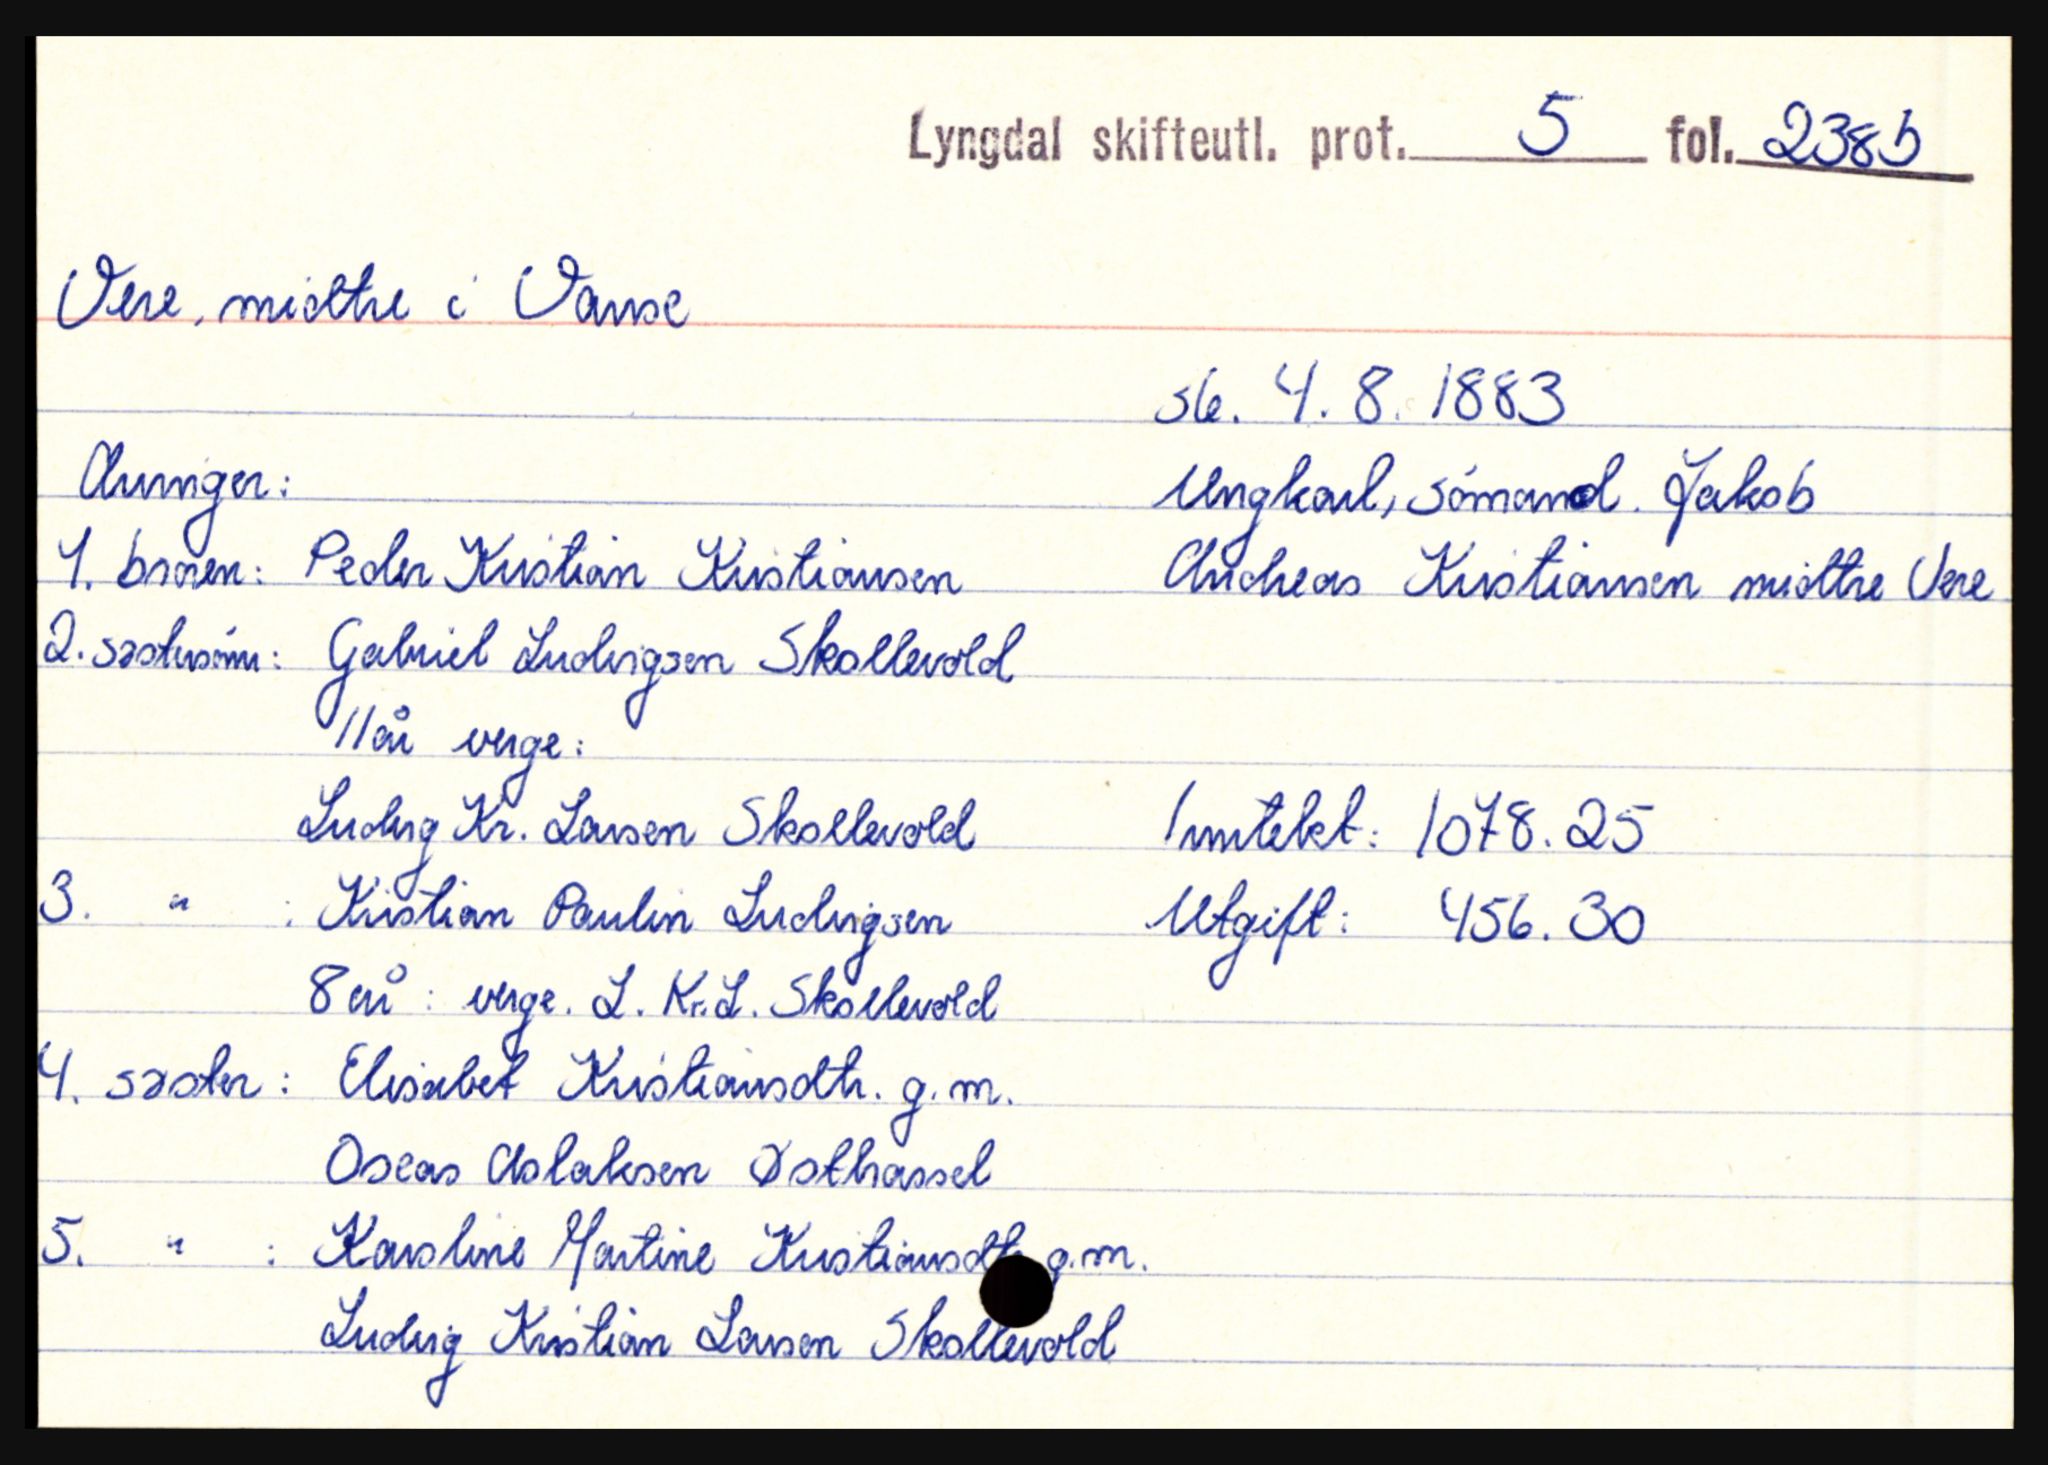 Lyngdal skifteutl. prot. 5 fol. 238b
Vere, midtre i Vanse
sl. 4.8.1883
Arvinger:
Ungkarl, sómand. Jakob
Andreas Kristiansen midtre Vere
1. broren: Peder Kristian Kristiansen
2. søstersónn: Gabriel Ludvigsen Skollevold
11 år verge:
Ludvig Kr. Larsen Skollevold
Inntekt: 1078.25
3. " : Kristian Paulin Ludvigsen
Utgift: 456.30
8 år : verge. L. Kr. L. Skollevold
4. søster : Elisabet Kristiansdtr. g.m.
Oseas Aslaksen Østhassel
5. " : Karoline Martine Kristiansdtr g.m.
Ludvig Kristian Larsen Skollevold